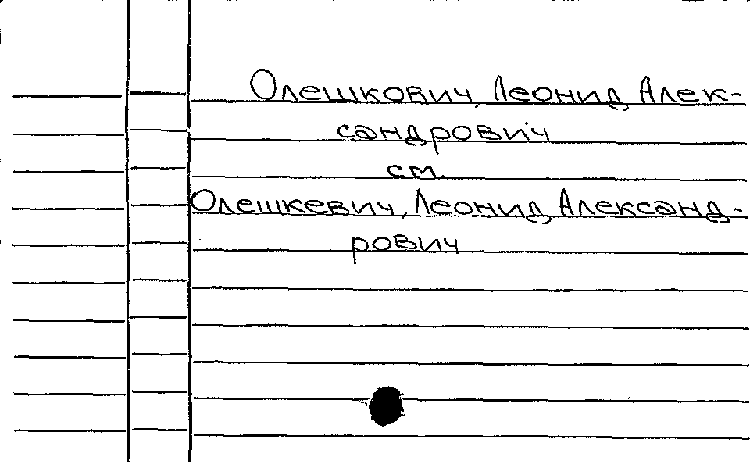 Олешкович, Леонид Алек-
сандрович
см.
Олешкевич, Леонид Александ-
рович